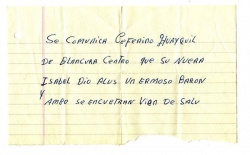 SE COMUNICA CEFERINO HUAYQUIL
DE BLANCURA CENTRO QUE SU NUERA
ISABEL DIO ALUS UN ERMOSO BARON
Y AMBO SE ENCUETRAN VIEN DE SALU